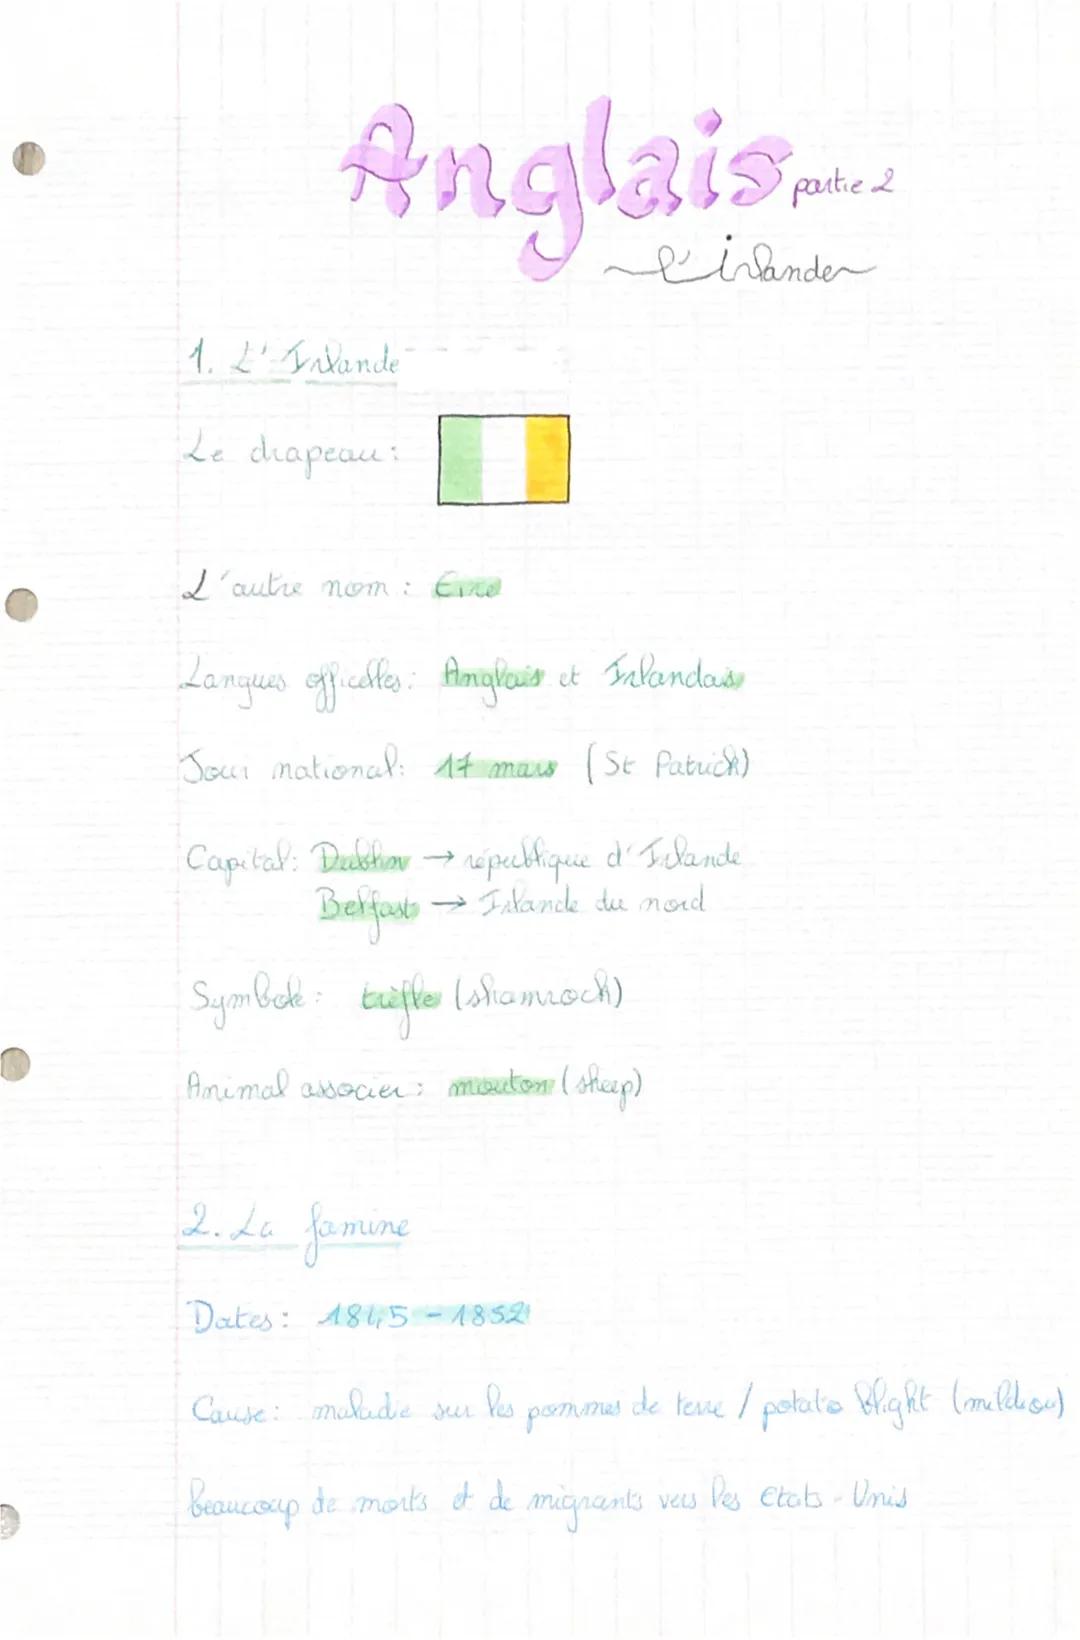 Anglais partie 2
l'irlande
1. L'Irlande
Le drapeau:
L'autre nom: Eire
Langues officelles: Anglais et Irlandais
Jour national: 17 mars (St Patrick)
Capital: Dublin → république d'Irlande
Belfast → Irlande du nord
Symbole: trèfle (shamrock)
Animal associer: mouton (sheep)
2. La famine
Dates: 1845-1852
Cause: maladie sur les pommes de terre / potato blight (mildiou)
beaucoup de morts et de migrants vers les Etats-Unis